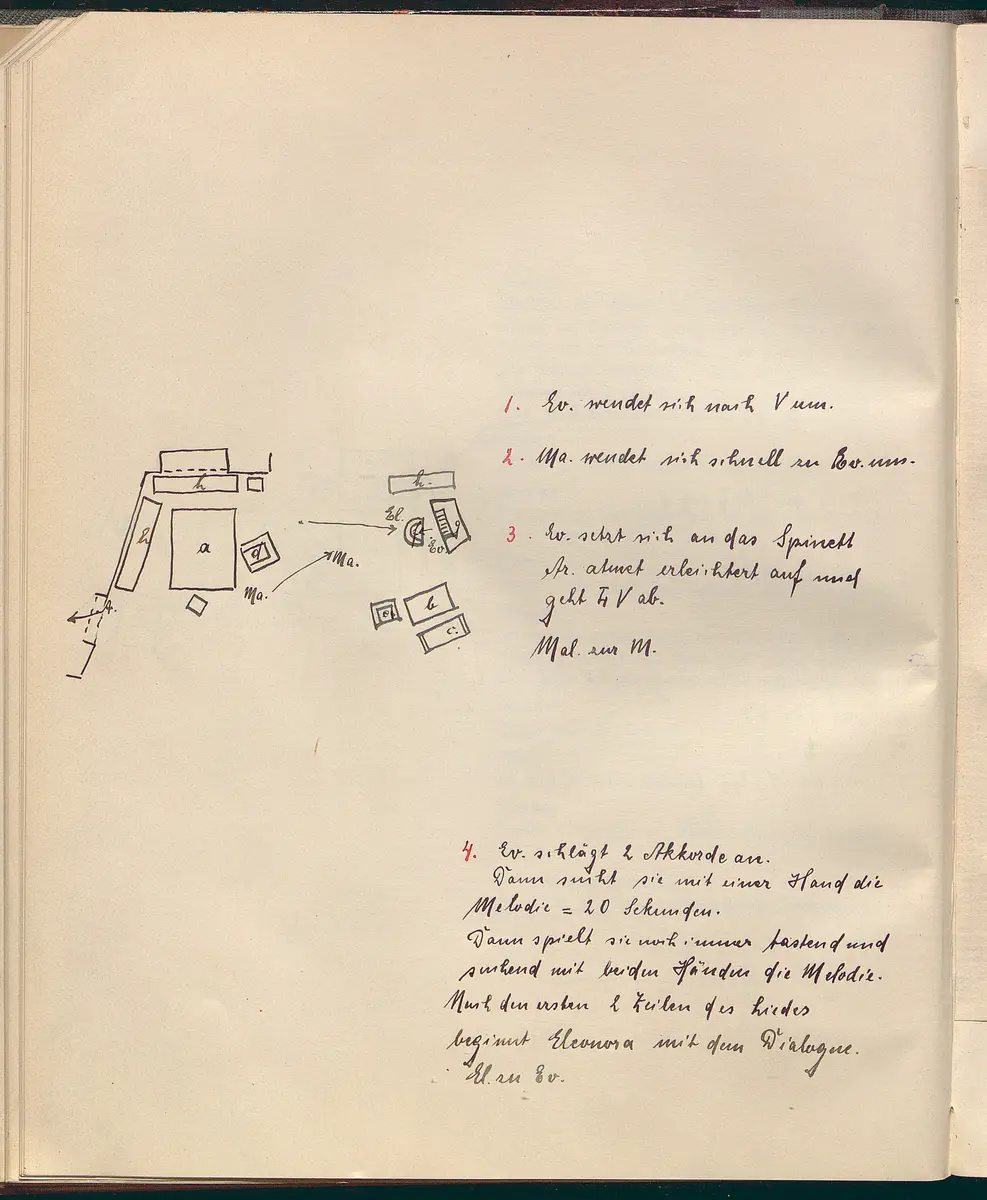 h
h.
h
a
d
El.
Ev.
g
Ma.
Ma.
A.
b
c.
1. Ev. wendet sich nach V um.
2. Ma. wendet sich schnell zu Ev. um.
3. Ev. setzt sich an das Spinett
Ar. atmet erleichtert auf und
geht V ab.
Mal. zur M.
4. Ev. schlägt 2 Akkorde an.
Dann sucht sie mit einer Hand die
Melodie = 20 Sekunden.
Dann spielt sie noch immer tastend und
suchend mit beiden Händen die Melodie.
Nach den ersten 2 Zeilen des Liedes
beginnt Eleonora mit dem Dialoge.
El. zu Ev.